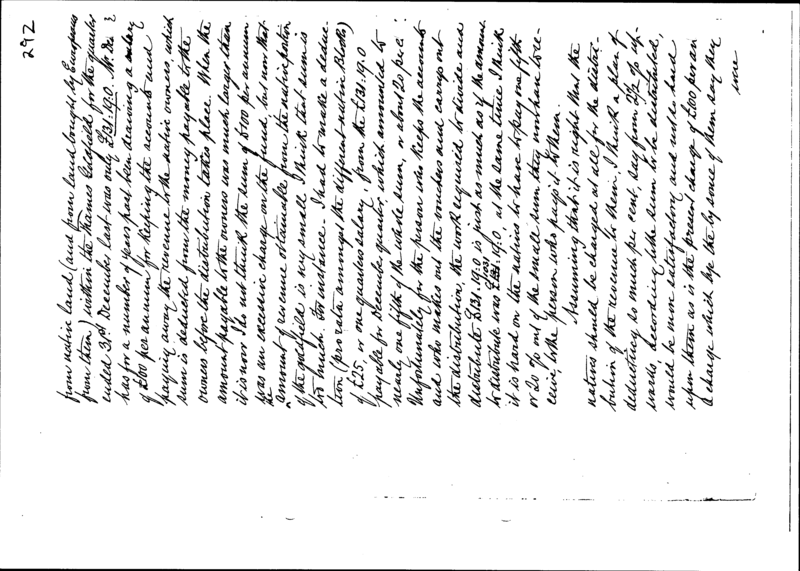 292
from native land (and from land bought by Europeans
from them) within the Thames Goldfield for the quarter
ended 31st December last was only £131.19.0. Mr.
has for a number of years past been drawing a salary
of £100 per annum for keeping the accounts and
paying away the revenue to the native owners, which
sum is deducted from the money payable to the
owners before the distribution takes place. When the
amount payable to the owners was much larger than
it is now I do not think the sum of £100 per annum
was an excessive charge on the fund, but now that
the
amount of revenue obtainable from the native portion
of the goldfield is very small I think that sum is
too much. For instance. I had to make a deduc-
tion (pro rata amongst the different native Blocks)
of £25, or one quarters salary, from the £131.19.0
payable for December quarter, which amounted to
nearly one fifth of the whole sum, or about 20 per c:
Unfortunately for the person who keeps the accounts
and who makes out the vouchers and carries out
the distribution, the work required to divide and
distribute £131.19.0 is just as much as if the amount
to distribute was £ at the same time I think
it is hard on the natives to have to pay one fifth
or 20 % out of the small sum they now have to re-
ceive, to the person who pays it to them.
Assuming that it is right that the
natives should be charged at all for the distri-
bution of the revenue to them, I think a plan of
deducting so much per cent, say from 2½ % up-
wards, according to the sum to be distributed,
would be more satisfactory and not so hard
upon them as is the present charge of £100 per an
a charge which by the by some of them say they
were